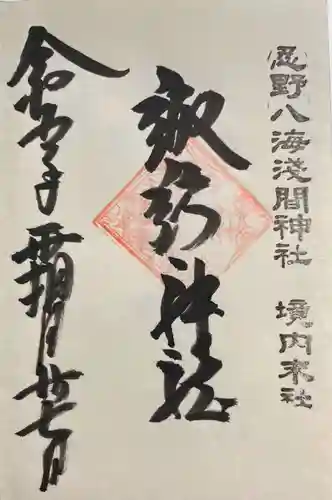 忍野八海淺間神社　境内末社
諏訪神社
令和年霜月廿七日